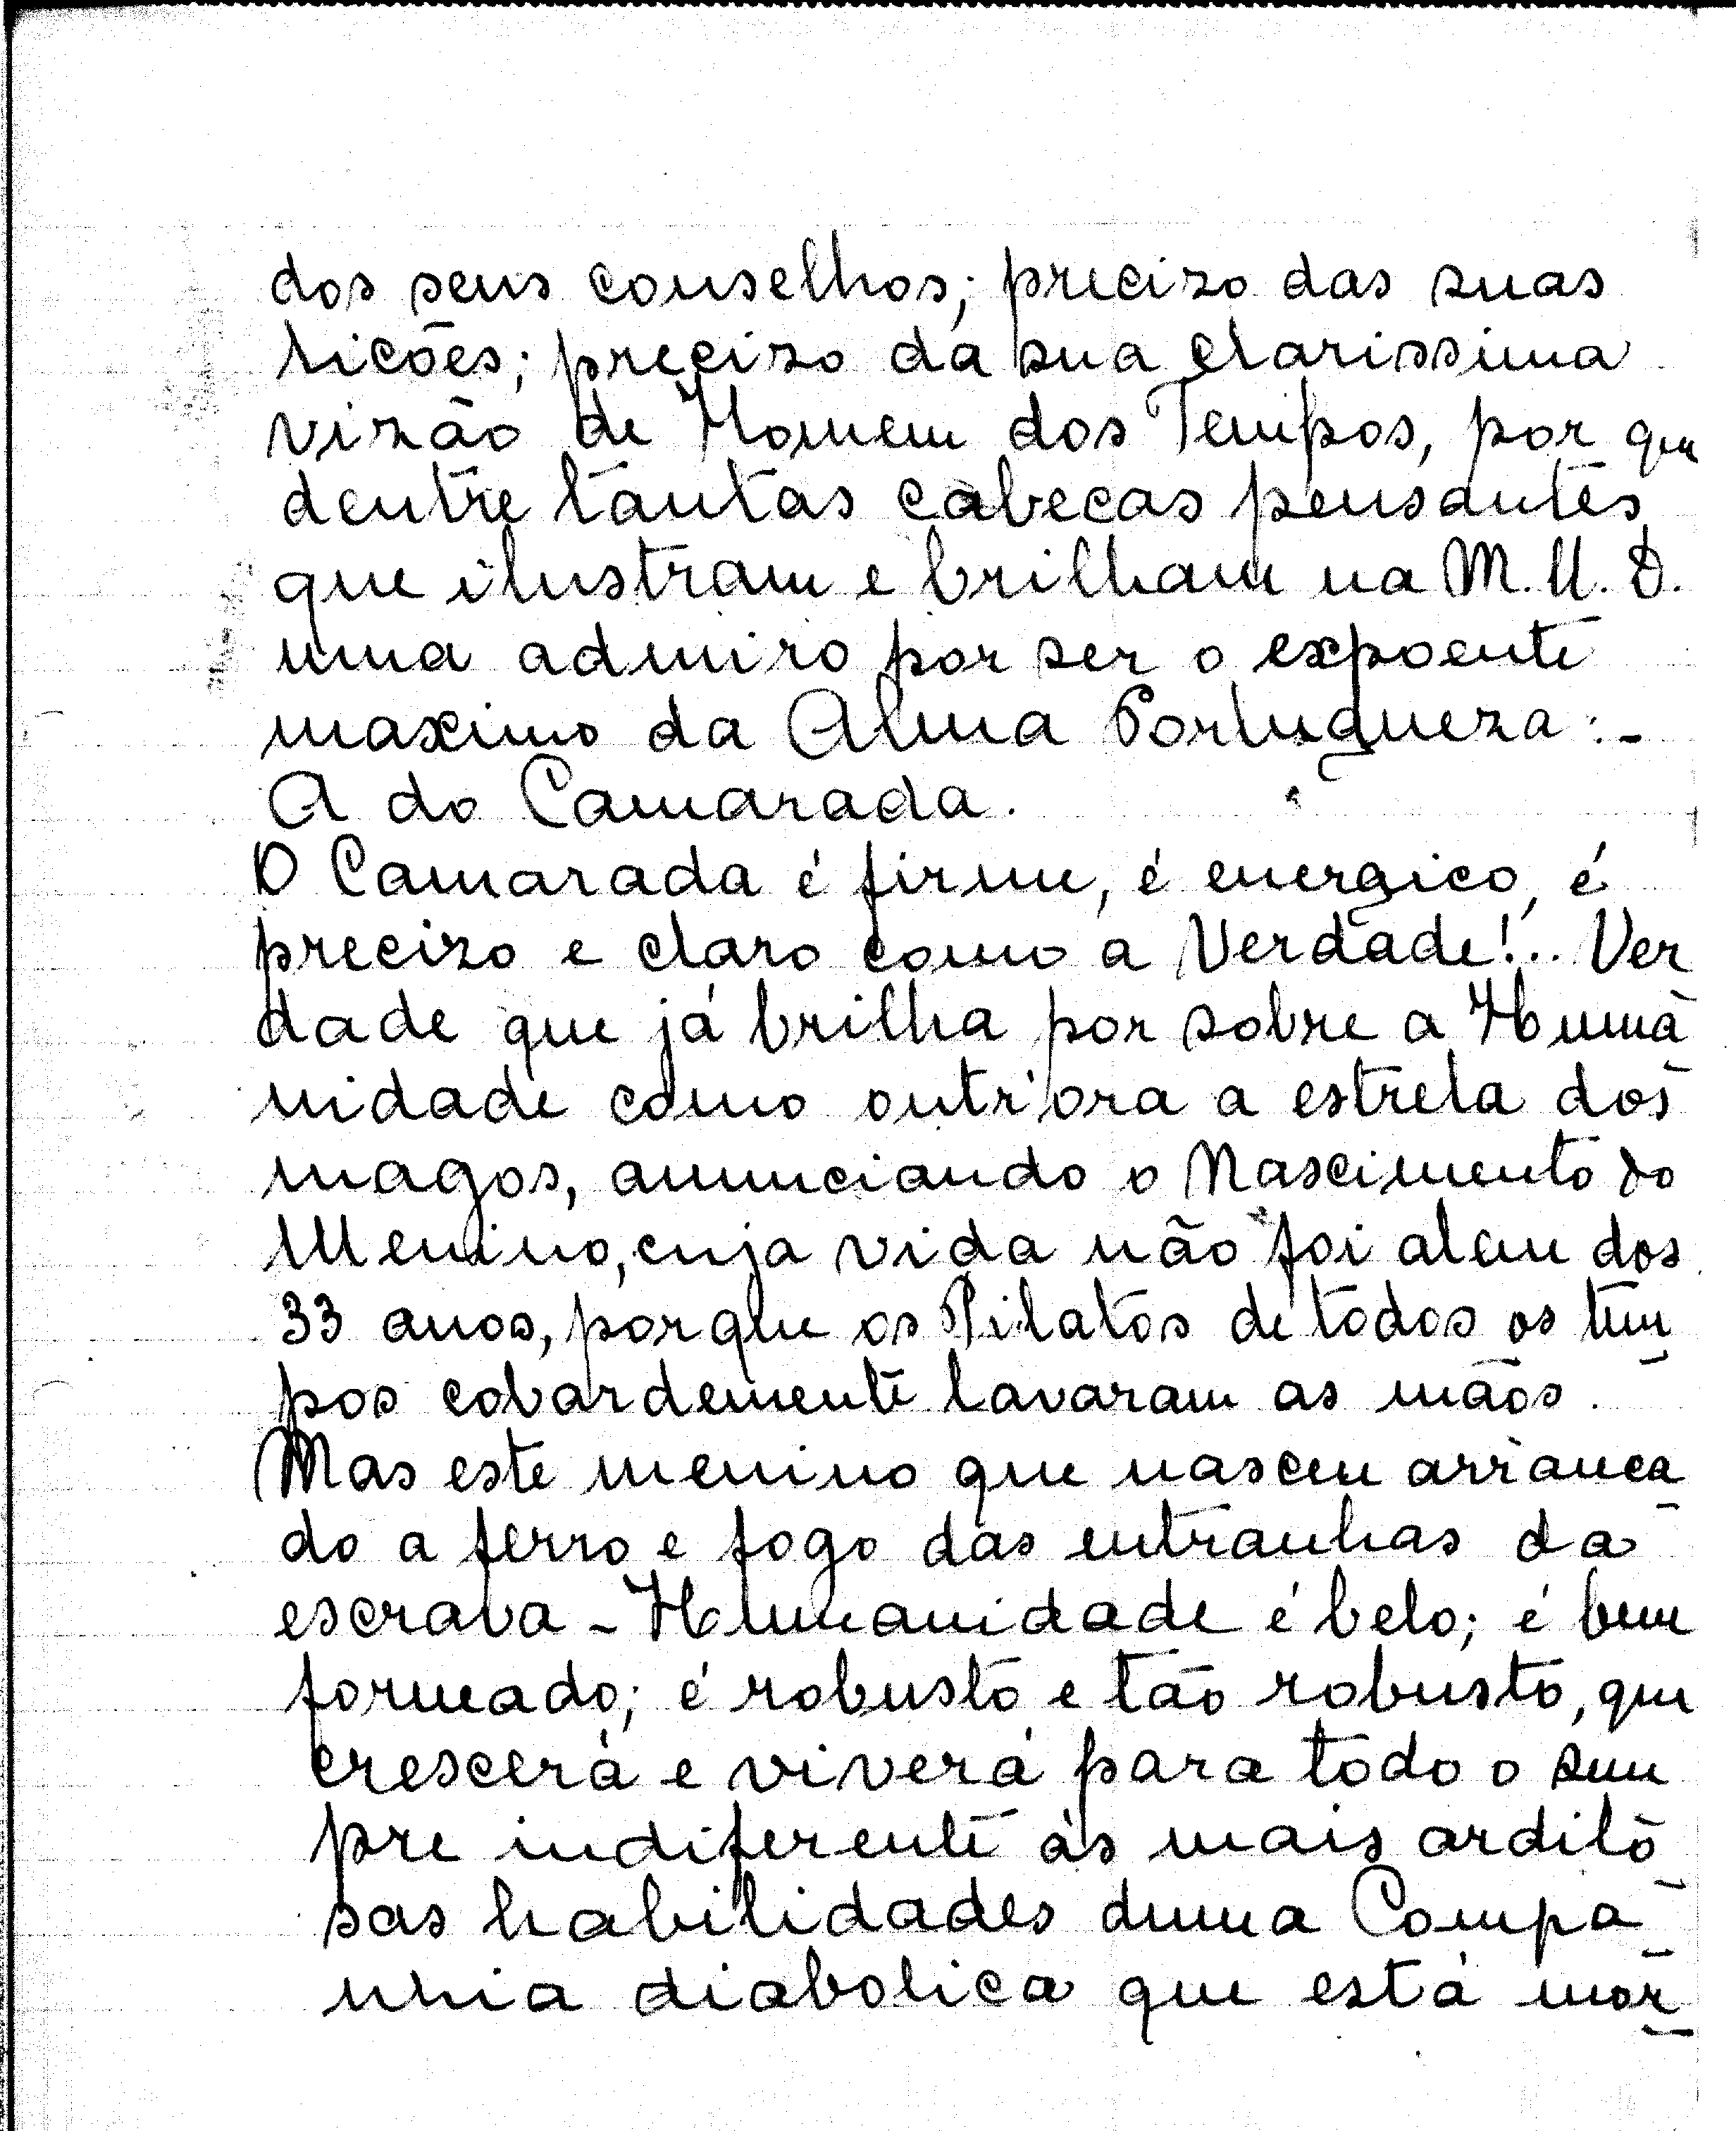 dos seus conselhos; precizo das suas
licões; precizo da sua clarissima
vizão de Homem dos Tempos, por que
dentre tantas cabecas pensantes
que ilustram e brilham na M.U.D.
uma admiro por ser o expoente
maximo da Alma Portugueza:-
A do Camarada.
O Camarada é firme, é energico, é
precizo e claro como a Verdade!.. Ver
dade que já brilha por sobre a Huma
nidade como outr'ora a estrela dos
magos, anunciando o Nascimento do
Menino, cuja vida não foi alem dos
33 anos, porque os Pilatos de todos os tem
pos cobardemente lavaram as mãos.
Mas este menino que nasceu arranca
do a ferro e fogo das entranhas da
escrava - Humanidade é belo; é bem
formado; é robusto e tão robusto, que
crescerá e viverá para todo o sem
pre indiferente ás mais ardilo
sas habilidades duma Compa
nhia diabolica que está mor